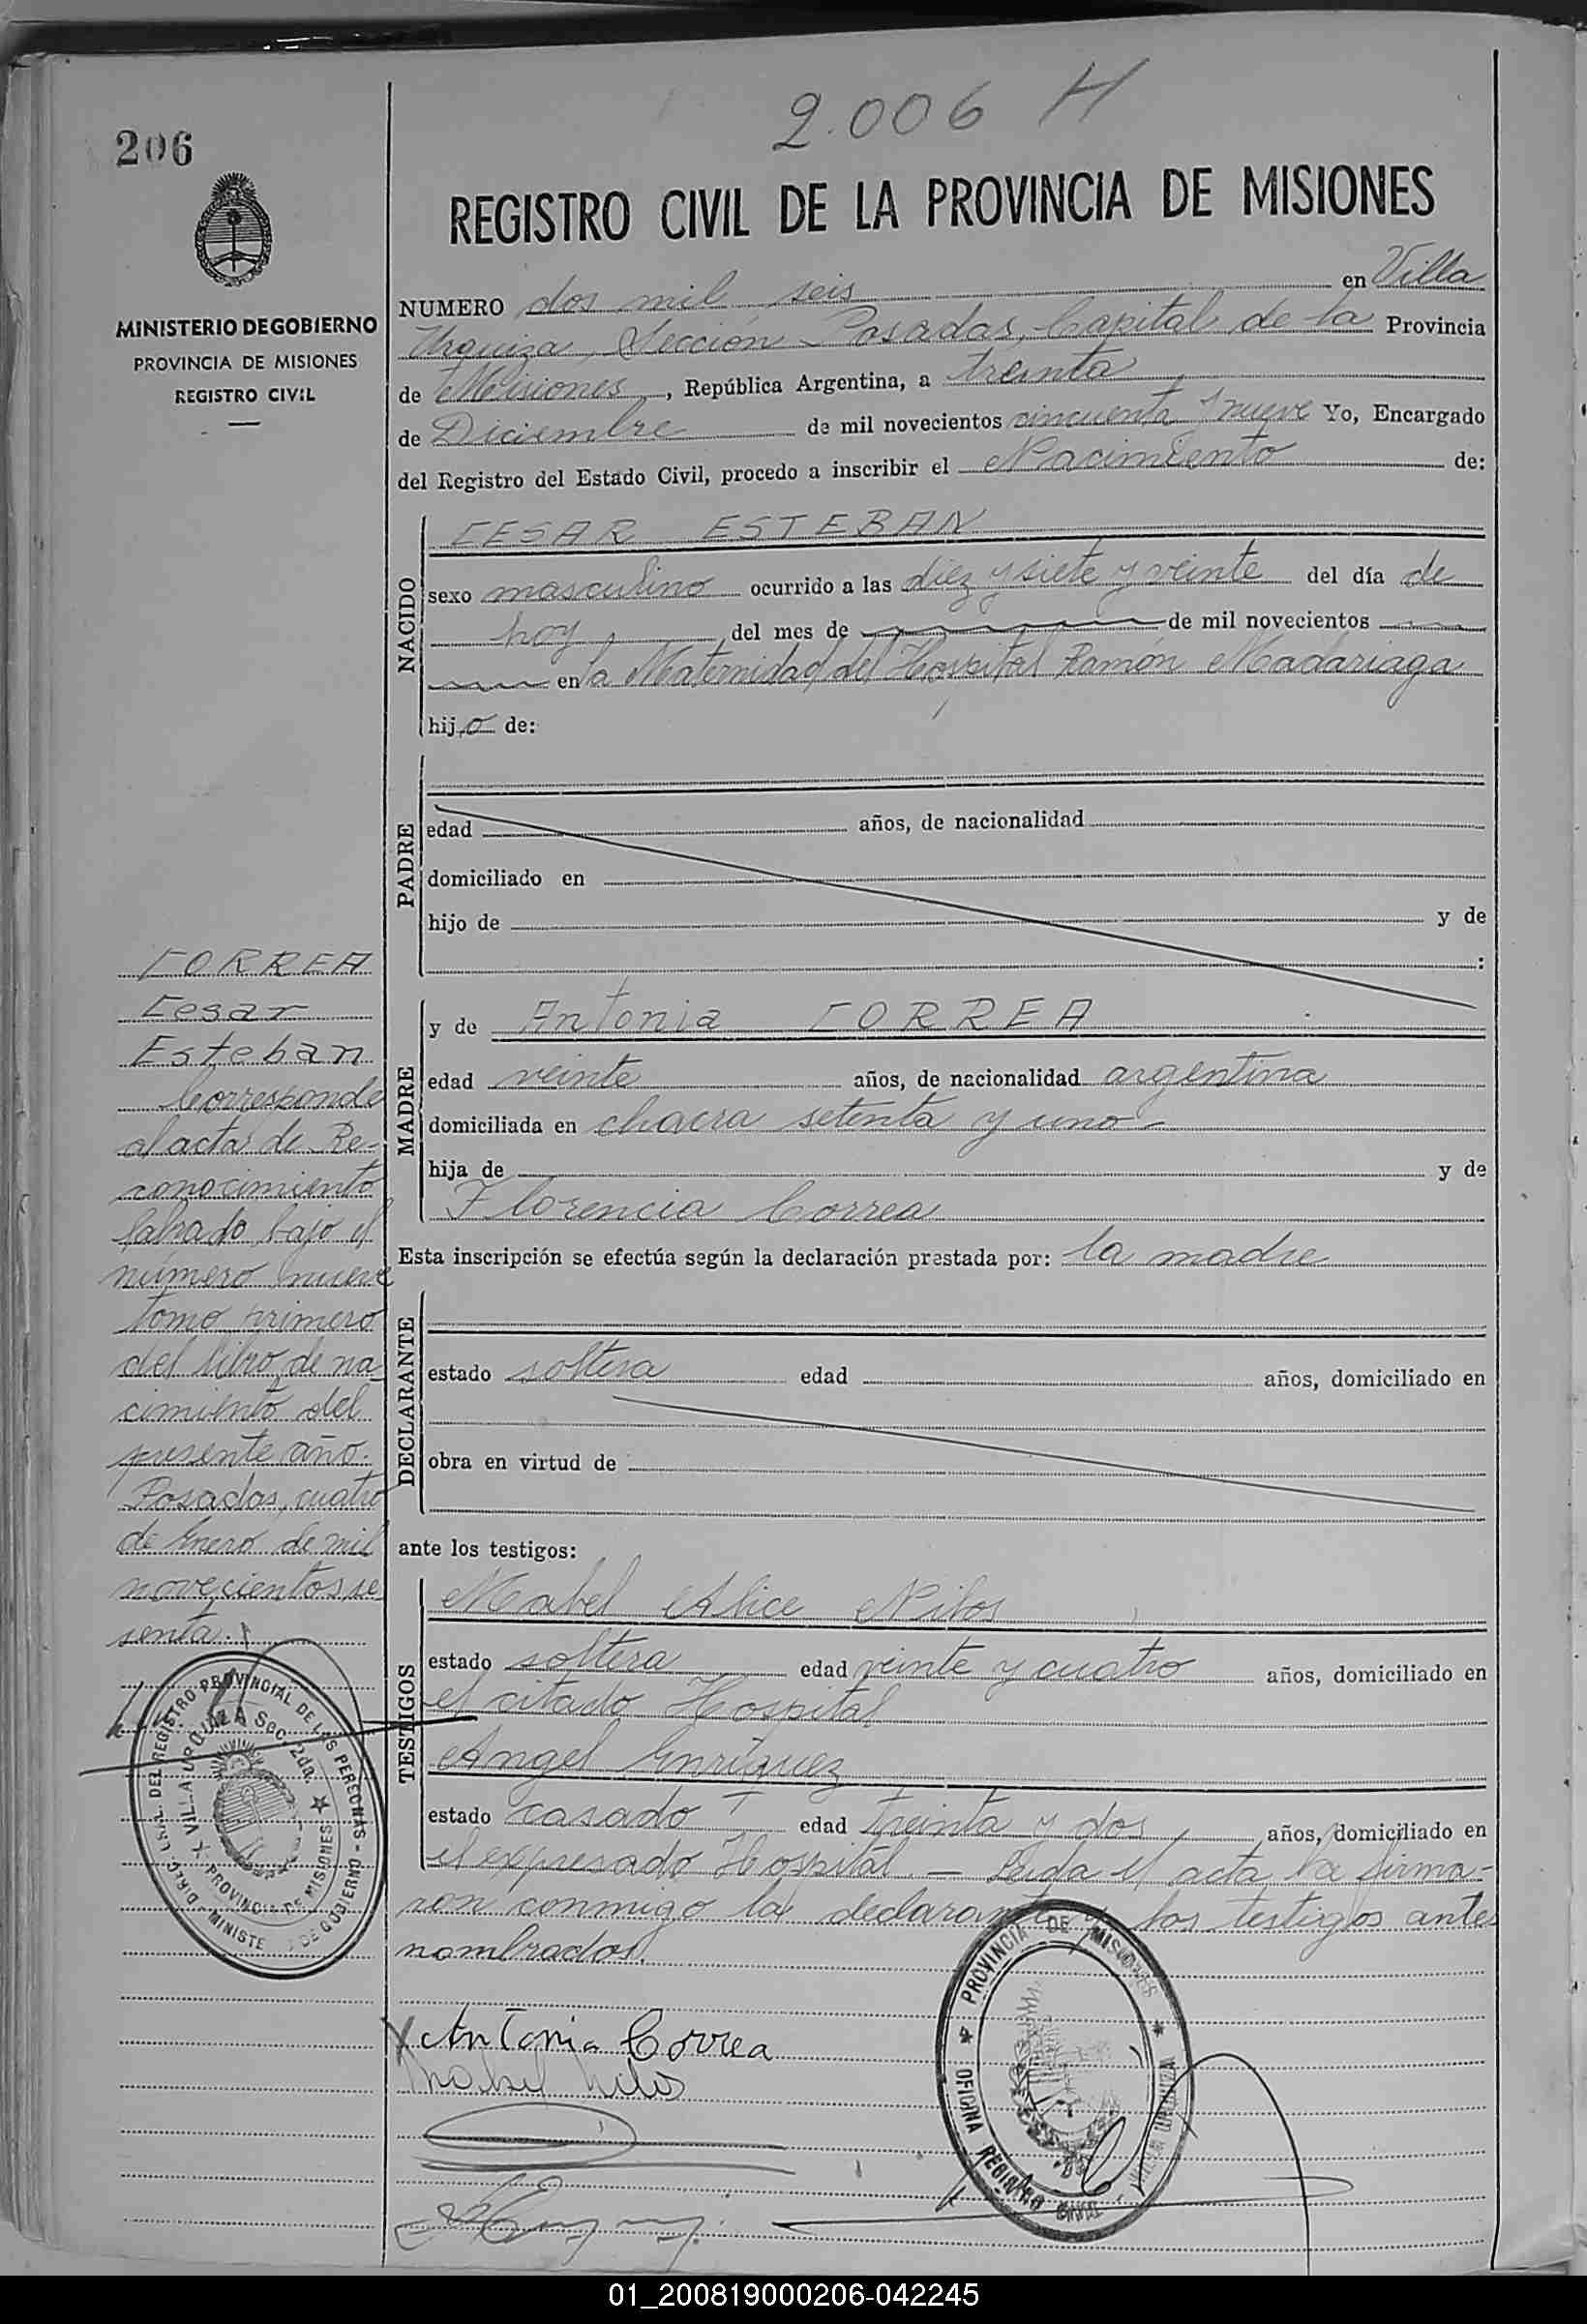 2.006 H
206
REGISTRO CIVIL DE LA PROVINCIA DE MISIONES
MINISTERIO DE GOBIERNO
PROVINCIA DE MISIONES
REGISTRO CIVIL
NUMERO dos mil seis en Villa
Urquiza, Sección Posadas, Capital de la Provincia
de Misiones, República Argentina, a treinta
de Diciembre de mil novecientos cincuenta y nueve Yo, Encargado
del Registro del Estado Civil, procedo a inscribir el Nacimiento de:
NACIDO
CESAR ESTEBAN
sexo masculino ocurrido a las diez y siete y veinte del día de
hoy del mes de de mil novecientos
en la Maternidad del Hospital Ramón Madariaga
hijo de:
PADRE
edad años, de nacionalidad
domiciliado en
hijo de y de
:
MADRE
y de Antonia CORREA
edad veinte años, de nacionalidad argentina
domiciliada en chacra setenta y uno
hija de y de
Florencia Correa
Esta inscripción se efectúa según la declaración prestada por: la madre
DECLARANTE
estado soltera edad años, domiciliado en
obra en virtud de
ante los testigos:
TESTIGOS
Mabel Alice Nilos
estado soltera edad veinte y cuatro años, domiciliado en
el citado Hospital
Angel Enriquez
estado casado edad treinta y dos años, domiciliado en
el expresado Hospital. - Leida el acta la firma-
ron conmigo la declarante y los testigos antes
nombrados.
CORREA
Cesar
Esteban
Corresponde
al acta de Re-
conocimiento
labrado bajo el
número nueve
tomo primero
del libro de na
cimiento del
presente año.
Posadas, cuatro
de Enero de mil
novecientos se
senta.
DEL REGISTRO PROVINCIAL DE LAS PERSONAS
VILLA URQUIZA Sec. 2da.
PROVINCIA DE MISIONES
Antonia Correa
Mabel Nilos
PROVINCIA DE MISIONES
OFICINA REGISTRO CIVIL
VILLA URQUIZA
01_200819000206-042245